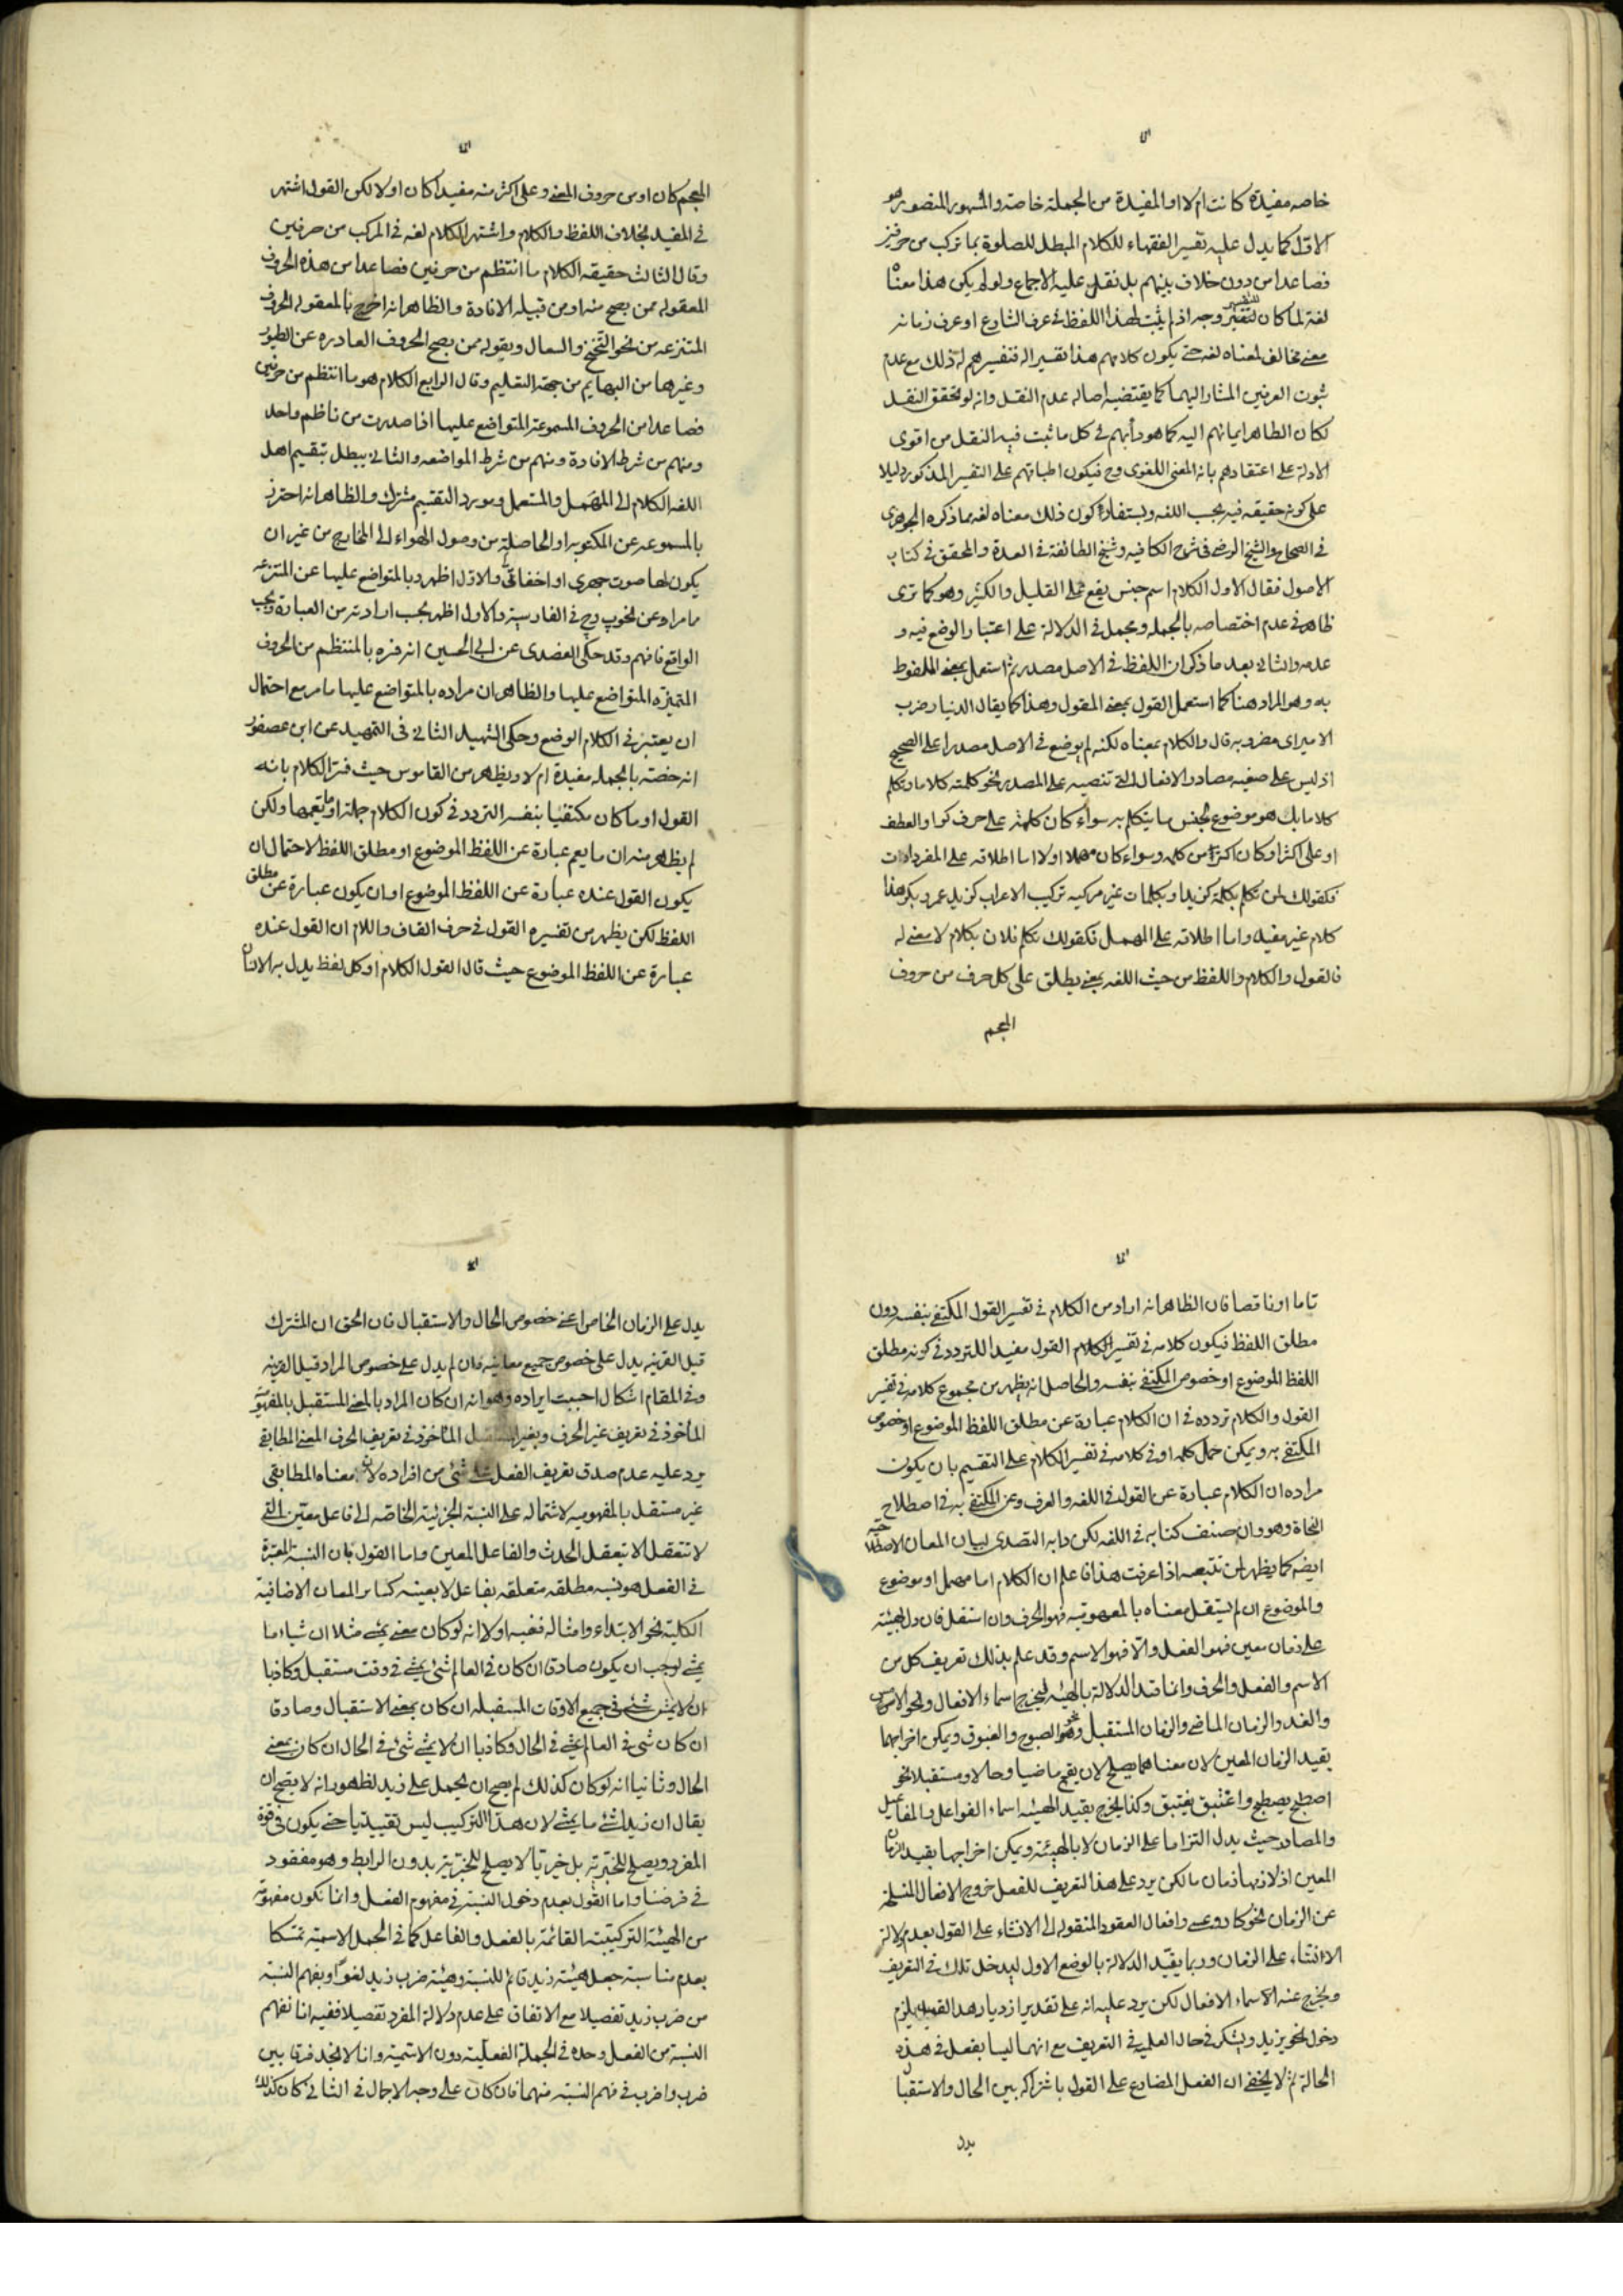 خاصه مفيدة كانت ام لا او المفيدة من الجملة خاصة والمشهور المنصور هو
الاول كما يدل عليه تفسير الفقهاء للكلام المبطل للصلوة بما تركب من حرفين
فصاعدا من دون خلاف بينهم بل نقل عليه الاجماع ولو لم يكن هذا معناه
لغة لما كان للتفسير وجه اذ لم يثبت لهذا اللفظ في عرف الشارع او عرف زمانه
معنى مخالف لمعناه لغة حتى يكون كلامهم هذا تفسيرا له فتفسيرهم له ذلك مع عدم
ثبوت العرفين المشار اليهما كما يقتضيه اصالة عدم النقل وانه لو تحقق النقل
لكان الظاهر ايمائهم اليه كما هو دأبهم في كل ما ثبت فيه النقل من اقوى
الادلة على اعتقادهم بانه المعنى اللغوى وح فيكون اطباقهم على التفسير المذكور دليلا
على كونه حقيقة فيه بحسب اللغه ويستفاد كون ذلك معناه لغة مما ذكره الجوهرى
في الصحاح والشيخ الرضى في شرح الكافيه وشيخ الطائفة في العدة والمحقق في كتاب
الاصول فقال الاول الكلام اسم جنس يقع على القليل والكثير وهو كما ترى
ظاهر في عدم اختصاصه بالجمله ومجمل في الدلالة على اعتبار الوضع فيه و
عدمه والثانى بعد ما ذكر ان اللفظ في الاصل مصدر ثم استعمل بمعنى الملفوظ
به وهو المراد هنا كما استعمل القول بمعنى المقول وهذا كما يقال الدينار ضرب
الامير اى مضروبه قال والكلام بمعناه لكنه لم يوضع في الاصل مصدرا على الصحيح
اذ ليس على صيغة مصادر الافعال التى تنصبه على المصدر نحو كلمته كلاما وتكلم
كلاما بل هو موضوع لجنس ما يتكلم به سواء كان كلمة على حرف كواو العطف
او على اكثر او كان اكثر من كلمه وسواء كان مهملا او لا اما اطلاقه على المفردات
فكقولك لمن تكلم بكلمة كزيد او بكلمات غير مركبه تركيب الاعراب كزيد عمرو بكر هذا
كلام غير مفيد واما اطلاقه على المهمل فكقولك تكلم فلان بكلام لا معنى له
فالقول والكلام واللفظ من حيث اللغه بمعنى يطلق على كل حرف من حروف
المعجم
المعجم كان او من حروف المعنى وعلى اكثر منه مفيدا كان او لا لكن القول اشتهر
في المفيد بخلاف اللفظ والكلام واشتهر الكلام لغه في المركب من حرفين
وقال الثالث حقيقة الكلام ما انتظم من حرفين فصاعدا من هذه الحروف
المعقوله ممن يصح منه او من قبيله الافادة والظاهر انه اخرج بالمعقوله الحروف
المنتزعه من نحو التنحنح والسعال وبقوله ممن يصح الحروف الصادره عن الطيور
وغيرها من البهايم من جهة التعليم وقال الرابع الكلام هو ما انتظم من حرفين
فصاعدا من الحروف المسموعة المتواضع عليها اذا صدرت من ناظم واحد
ومنهم من شرط الافادة ومنهم من شرط المواضعه والثانى يبطل بتقسيم اهل
اللغه الكلام الى المهمل والمستعمل ومورد التقسيم مشترك والظاهر انه احترز
بالمسموعه عن المكتوبه او الحاصلة من وصول الهواء الى المخارج من غير ان
يكون لها صوت جهرى او اخفاتى والاول اظهر وبالمتواضع عليها عن المنتزعه
مما مر او عن نحو پ وچ في الفارسية والاول اظهر بحسب ارادته من العبارة وبحسب
الواقع فافهم وقد حكى العضدى عن ابى الحسين انه فسره بالمنتظم من الحروف
المتميزه المتواضع عليها والظاهر ان مراده بالمتواضع عليها ما مر مع احتمال
ان يعتبر في الكلام الوضع وحكى الشهيد الثانى في التمهيد عن ابن عصفور
انه خصته بالجمله مفيدة ام لا ويظهر من القاموس حيث فسر الكلام بانه
القول او ما كان مكتفيا بنفسه التردد في كون الكلام جملة او ما يعمها ولكن
لم يظهر منه ان ما يعم عبارة عن اللفظ الموضوع او مطلق اللفظ لاحتمال ان
يكون القول عنده عبارة عن اللفظ الموضوع او ان يكون عبارة عن مطلق
اللفظ لكن يظهر من تفسيره القول في حرف القاف واللام ان القول عنده
عبارة عن اللفظ الموضوع حيث قال القول الكلام او كل لفظ يدل به اللسان
تاما او ناقصا فان الظاهر انه اراد من الكلام في تفسير القول المكتفى بنفسه دون
مطلق اللفظ فيكون كلامه في تفسير الكلام القول مفيدا للتردد في كونه مطلق
اللفظ الموضوع او خصوص المكتفى بنفسه والحاصل انه يظهر من مجموع كلامه في تفسير
القول والكلام تردده في ان الكلام عبارة عن مطلق اللفظ الموضوع او خصوص
المكتفى به ويمكن حمل كلمه او في كلامه في تفسير الكلام على التقسيم بان يكون
مراده ان الكلام عبارة عن القول في اللغه والعرف وعن المكتفى به في اصطلاح
النحاة وهو وان صنف كتابه في اللغه لكن دابه التصدى لبيان المعان الاصطلاحية
ايضه كما يظهر لمن تتبعه اذا عرفت هذا فاعلم ان الكلام اما مهمل او موضوع
والموضوع ان لم يستقل معناه بالمفهومية فهو الحرف وان استقل فان دل بهيئته
على زمان معين فهو الفعل والا فهو الاسم وقد علم بذلك تعريف كل من
الاسم والفعل والحرف وانما قيد الدلالة بالهيئه ليخرج اسماء الافعال ونحو الامس
والغد والزمان الماضى والزمان المستقبل ونحو الصبوح والغبوق ويمكن اخراجهما
بقيد الزمان المعين لان معناهما يصلح لان يقع ماضيا وحالا ومستقبلا نحو
اصطبح يصطبح واغتبق يغتبق وكذا يخرج بقيد الهيئه اسماء الفواعل والمفاعيل
والمصادر حيث يدل التزاما على الزمان لا بالهيئة ويمكن اخراجها بقيد الزمان
المعين اذ لازمها زمان ما لكن يرد على هذا التعريف للفعل خروج الافعال المنسلخة
عن الزمان نحو كاد وعسى وافعال العقود المنقوله الى الانشاء على القول بعدم دلالة
الانشاء على الزمان وربما يقيد الدلالة بالوضع الاول ليدخل تلك في التعريف
ويخرج عنه الاسماء الافعال لكن يرد عليه انه على تقدير ازدياد هذا القيد يلزم
دخول نحو يزيد ويشكر في حال العلمية في التعريف مع انهما ليسا بفعل في هذه
الحالة ثم لا يخفى ان الفعل المضارع على القول باشتراكه بين الحال والاستقبال
يدل
يدل على الزمان الخاص اعنى خصوص الحال والاستقبال فان الحق ان المشترك
قبل القرينه يدل على خصوص جميع معانيه فان لم يدل على خصوص المراد قبل القرينه
وفى المقام اشكال احببت ايراده وهو انه ان كان المراد بالمعنى المستقبل بالمفهوميته
المأخوذ في تعريف غير الحرف وبغير المستقل المأخوذ في تعريف الحرف المعنى المطابقى
يرد عليه عدم صدق تعريف الفعل على شئ من افراده لان معناه المطابقى
غير مستقل بالمفهوميه لاشتماله على النسبة الجزئية الخاصه الى فاعل معين التى
لا تتعقل الا بتعقل الحدث والفاعل المعين واما القول بان النسبة المعتبرة
في الفعل هو نسبه مطلقه متعلقه بفاعل لا بعينه كساير المعان الاضافية
الكلية نحو الابتداء وامثاله ففيه اولا انه لو كان معنى يمشى مثلا ان شياء ما
يمشى لوجب ان يكون صادقا ان كان في العالم شئ يمشى في وقت مستقبل وكاذبا
ان لا يمشى شئ في جميع الاوقات المستقبله ان كان بمعنى الاستقبال وصادقا
ان كان شئ في العالم يمشى في الحال وكاذبا ان لا يمشى شئ في الحال ان كان بمعنى
الحال وثانيا انه لو كان كذلك لم يصح ان يحمل على زيد لظهور انه لا يصح ان
يقال ان زيدا شئ ما يمشى لان هذا التركيب ليس تقييديا حتى يكون في قوة
المفرد ويصلح للخبرية بل خبريا لا يصلح للخبرية بدون الرابط وهو مفقود
في فرضنا واما القول بعدم دخول النسبة في مفهوم الفعل وانما تكون مفهومة
من الهيئة التركيبية القائمة بالفعل والفاعل كما في الجمل الاسمية تمسكا
بعدم مناسبة جعل هيئة زيد قائم للنسبة وهيئة ضرب زيد لغوا وبفهم النسبة
من ضرب زيد تفصيلا مع الاتفاق على عدم دلالة المفرد تفصيلا ففيه انا نفهم
النسبة من الفعل وحده في الجملة الفعلية دون الاسمية وانا لا نجد فرقا بين
ضرب واضرب في فهم النسبة منهما فان كان على وجه الاجمال في الثانى كان كذلك